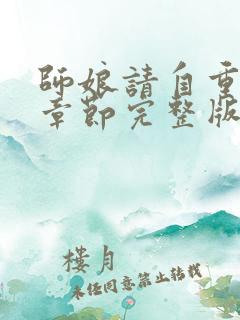 師娘請自重
章節完整版
樓月
未經同意禁止轉載